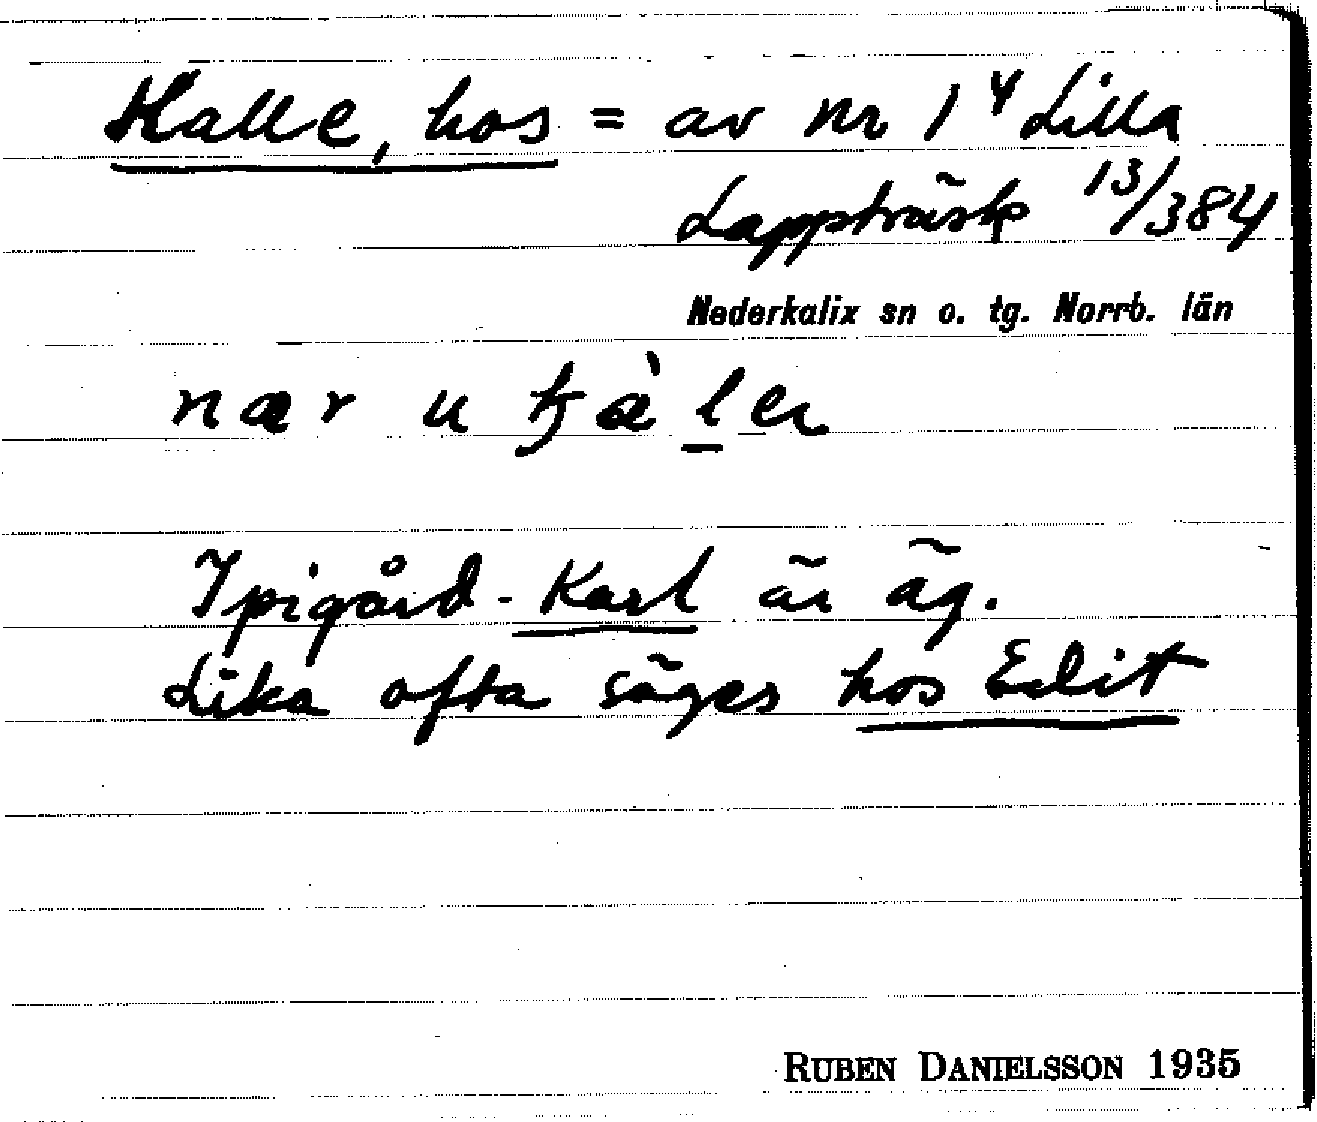 Kalle, hos = av nr 1⁴ Lilla
Lappträsk 13/384
Nederkalix sn o. tg. Norrb. län
nær u kæ̀ler
Ipigård-Karl är äg.
Lika ofta säges hos Edit
RUBEN DANIELSSON 1935